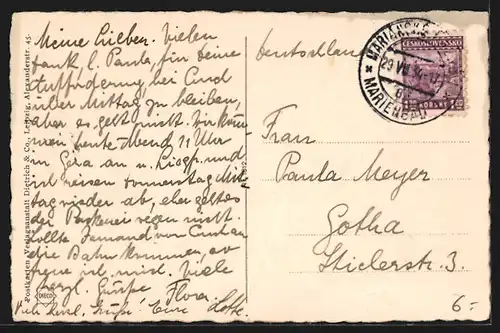 Meine Lieben. Vielen
Dank, l. Paula, für Deine
Aufforderung, bei Euch
über Mittag zu bleiben,
aber es geht nicht. Wir kom̄en
heute Abend 11 Uhr
in Gera an u.
reisen Donnerstag Mit-
tag wieder ab, eher geht es
der wegen nicht.
Sollte Jemand von Euch an
die Bahn kommen, so
freue ich mich. Viele
herzl. Grüße Flora.
Viele herzl. Grüße! Eure Lotte.
Postkarten Verlagsanstalt Dietrich & Co., Leipzig, Alexanderstr. 45.
DIECO
Deutschland
MARIÁNSKÉ
29 VII 3
MARIENBAD
ČESKOSLOVENSKO
Frau
Paula Meyer
Gotha
Stielerstr. 3.
6.-